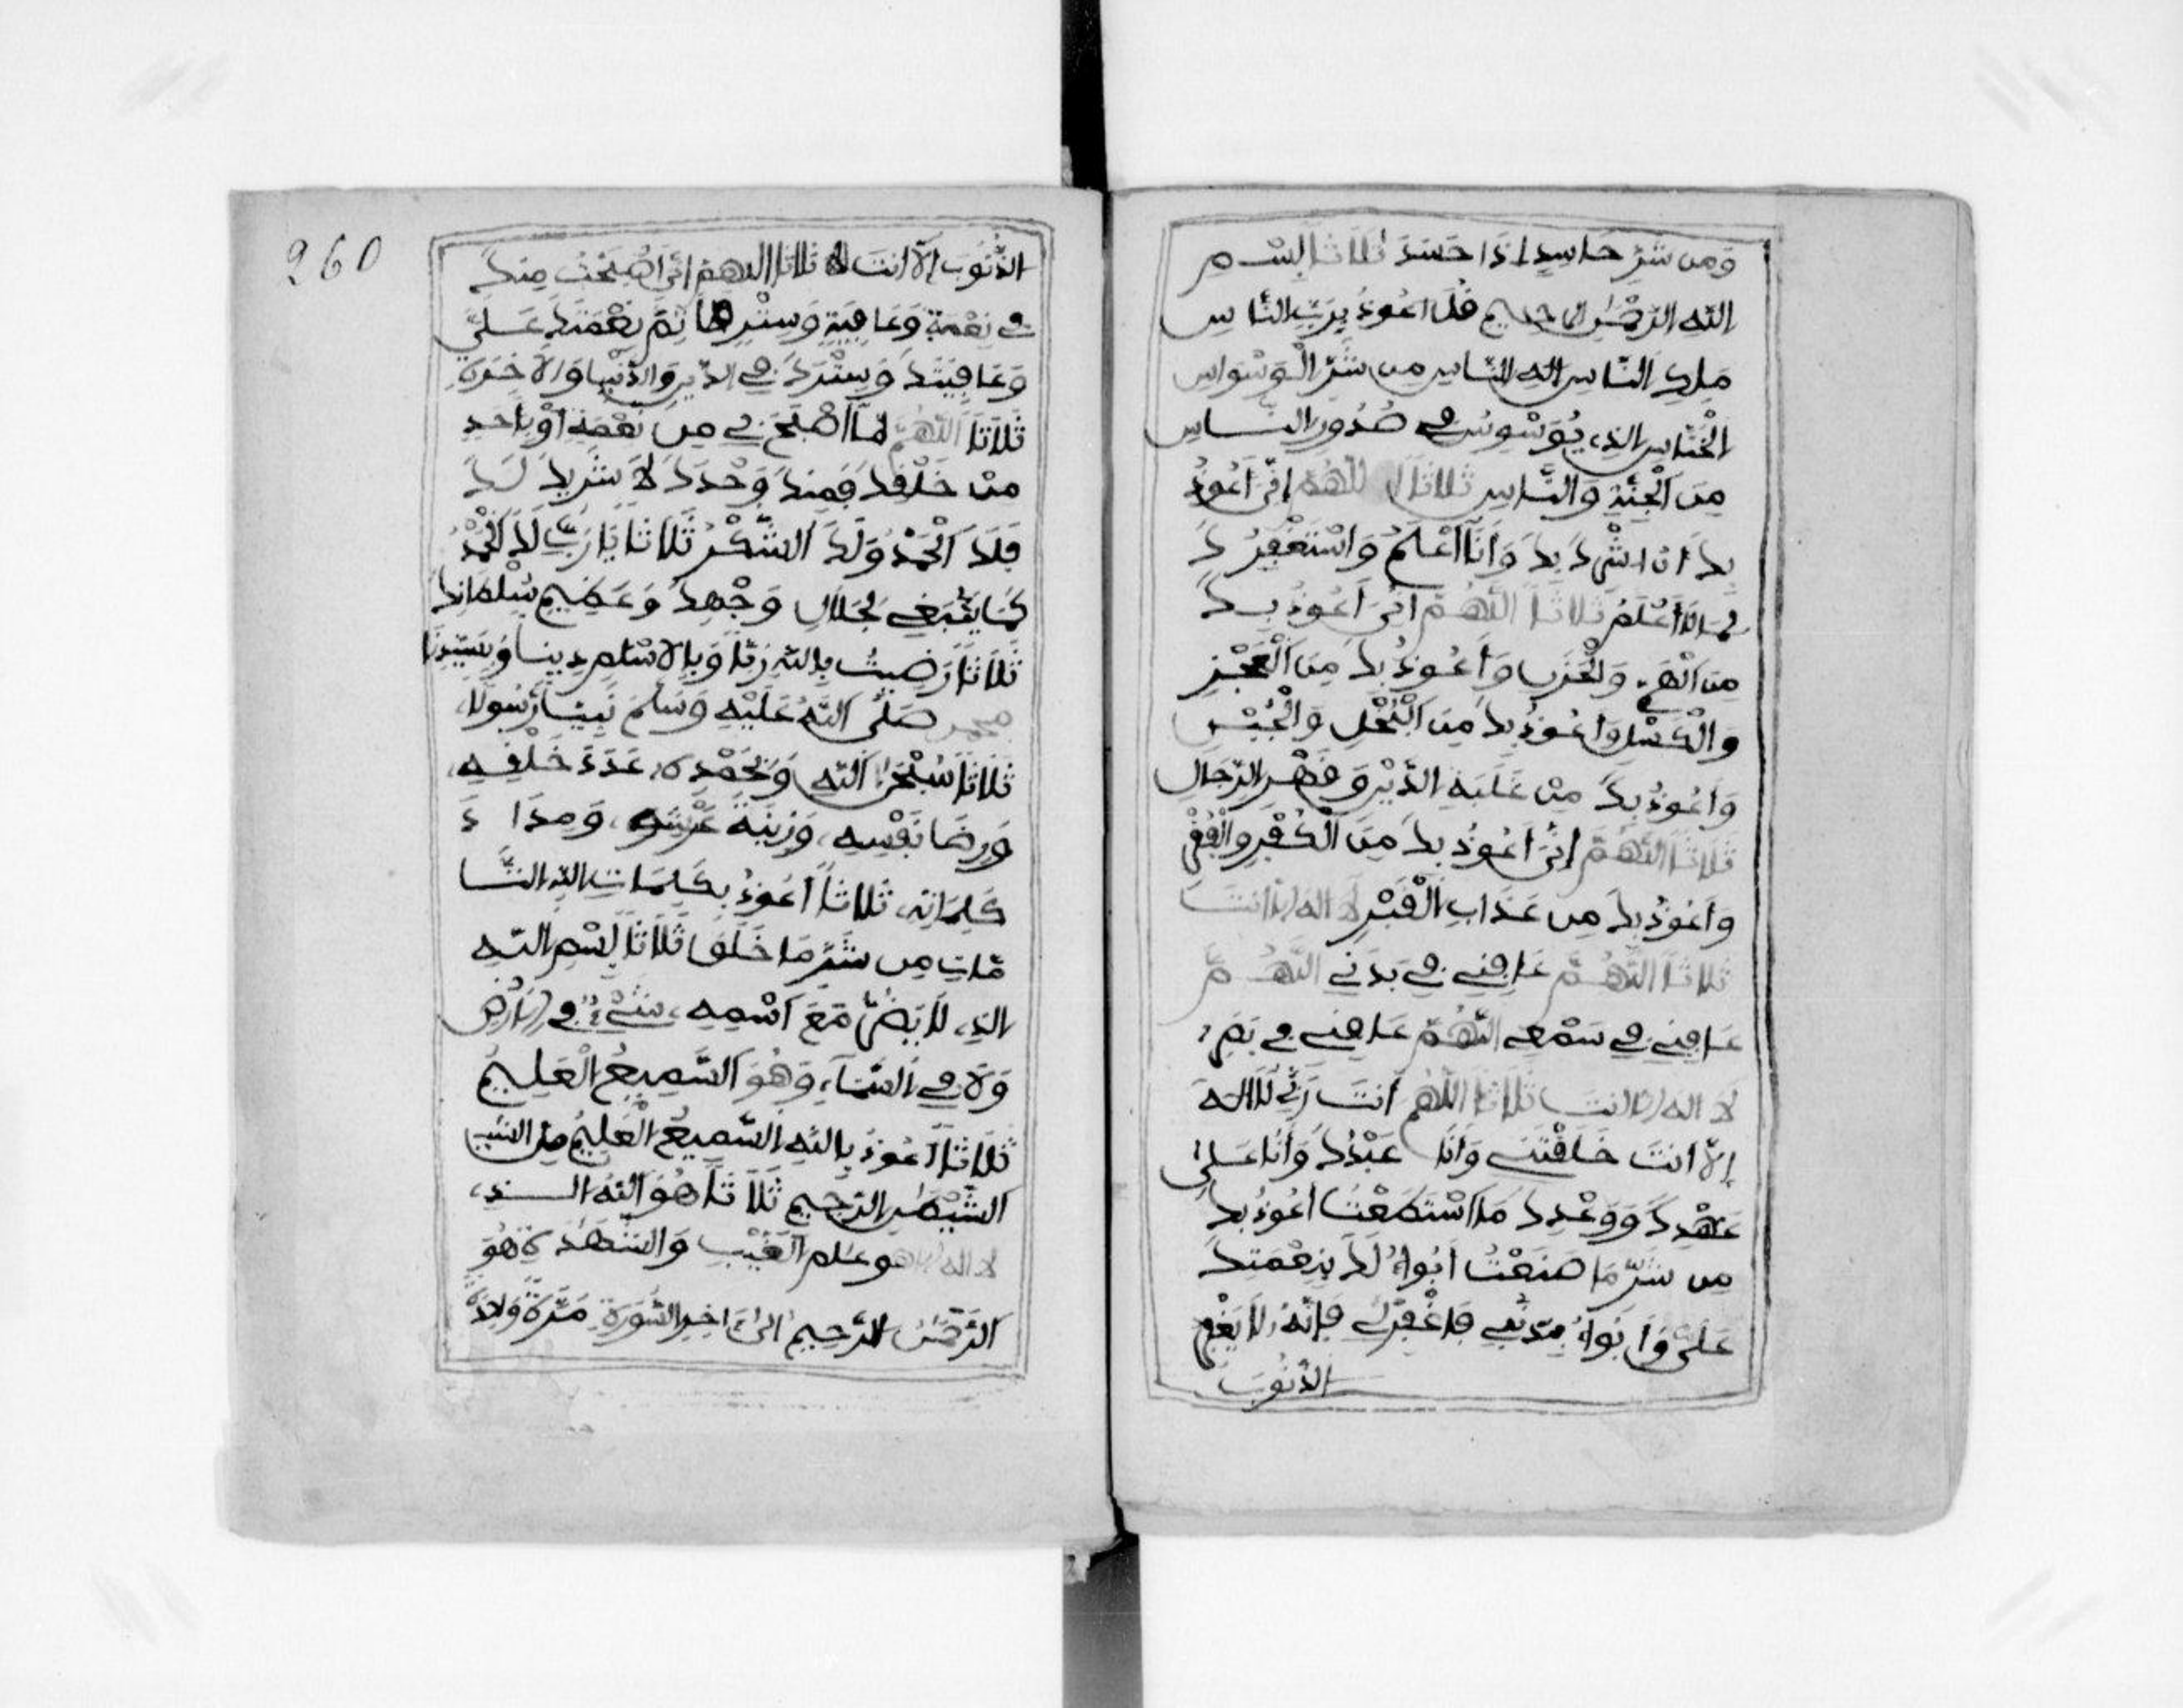 وَمِن شَرِّ حَاسِدٍ إِذَا حَسَدَ ثَلَاثًا بِسْمِ
اللَّهِ الرَّحْمَٰنِ الرَّحِيمِ قُلْ أَعُوذُ بِرَبِّ النَّاسِ
مَلِكِ النَّاسِ إِلَٰهِ النَّاسِ مِن شَرِّ الْوَسْوَاسِ
الْخَنَّاسِ الَّذِي يُوَسْوِسُ فِي صُدُورِ النَّاسِ
مِنَ الْجِنَّةِ وَالنَّاسِ ثَلَاثًا اللَّهُمَّ إِنِّي أَعُوذُ
بِكَ أَنْ أُشْرِكَ بِكَ وَأَنَا أَعْلَمُ وَأَسْتَغْفِرُكَ
لِمَا لَا أَعْلَمُ ثَلَاثًا اللَّهُمَّ إِنِّي أَعُوذُ بِكَ
مِنَ الْهَمِّ وَالْحَزَنِ وَأَعُوذُ بِكَ مِنَ الْعَجْزِ
وَالْكَسَلِ وَأَعُوذُ بِكَ مِنَ الْبُخْلِ وَالْجُبْنِ
وَأَعُوذُ بِكَ مِنْ غَلَبَةِ الدَّيْنِ وَقَهْرِ الرِّجَالِ
ثَلَاثًا اللَّهُمَّ إِنِّي أَعُوذُ بِكَ مِنَ الْكُفْرِ وَالْفَقْرِ
وَأَعُوذُ بِكَ مِن عَذَابِ الْقَبْرِ لَا إِلَهَ إِلَّا أَنْتَ
ثَلَاثًا اللَّهُمَّ عَافِنِي فِي بَدَنِي اللَّهُمَّ
عَافِنِي فِي سَمْعِي اللَّهُمَّ عَافِنِي فِي بَصَرِي
لَا إِلَهَ إِلَّا أَنْتَ ثَلَاثًا اللَّهُمَّ أَنْتَ رَبِّي لَا إِلَهَ
إِلَّا أَنْتَ خَلَقْتَنِي وَأَنَا عَبْدُكَ وَأَنَا عَلَى
عَهْدِكَ وَوَعْدِكَ مَا اسْتَطَعْتُ أَعُوذُ بِكَ
مِن شَرِّ مَا صَنَعْتُ أَبُوءُ لَكَ بِنِعْمَتِكَ
عَلَيَّ وَأَبُوءُ بِذَنْبِي فَاغْفِرْ لِي فَإِنَّهُ لَا يَغْفِرُ
الذُّنُوبَ
260
الذُّنُوبَ إِلَّا أَنْتَ ثَلَاثًا اللَّهُمَّ إِنِّي أَصْبَحْتُ مِنْكَ
فِي نِعْمَةٍ وَعَافِيَةٍ وَسِتْرٍ فَأَتِمَّ نِعْمَتَكَ عَلَيَّ
وَعَافِيَتَكَ وَسِتْرَكَ فِي الدِّينِ وَالدُّنْيَا وَالْآخِرَةِ
ثَلَاثًا اللَّهُمَّ مَا أَصْبَحَ بِي مِن نِعْمَةٍ أَوْ بِأَحَدٍ
مِنْ خَلْقِكَ فَمِنْكَ وَحْدَكَ لَا شَرِيكَ لَكَ
فَلَكَ الْحَمْدُ وَلَكَ الشُّكْرُ ثَلَاثًا يَا رَبِّ لَكَ الْحَمْدُ
كَمَا يَنْبَغِي لِجَلَالِ وَجْهِكَ وَعَظِيمِ سُلْطَانِكَ
ثَلَاثًا رَضِيتُ بِاللَّهِ رَبًّا وَبِالْإِسْلَامِ دِينًا وَبِسَيِّدِنَا
محمد صَلَّى اللَّهُ عَلَيْهِ وَسَلَّمَ نَبِيًّا رَسُولًا
ثَلَاثًا سُبْحَٰنَ اللَّهِ وَبِحَمْدِهِ عَدَدَ خَلْقِهِ
وَرِضَا نَفْسِهِ وَزِنَةَ عَرْشِهِ وَمِدَادَ
كَلِمَاتِهِ ثَلَاثًا أَعُوذُ بِكَلِمَاتِ اللَّهِ التَّا
مَّاتِ مِن شَرِّ مَا خَلَقَ ثَلَاثًا بِسْمِ اللَّهِ
الَّذِي لَا يَضُرُّ مَعَ اسْمِهِ شَيْءٌ فِي الْأَرْضِ
وَلَا فِي السَّمَاءِ وَهُوَ السَّمِيعُ الْعَلِيمُ
ثَلَاثًا أَعُوذُ بِاللَّهِ السَّمِيعِ الْعَلِيمِ مِنَ
الشَّيْطَٰنِ الرَّجِيمِ ثَلَاثًا هُوَ اللَّهُ الَّذِي
لَا إِلَهَ إِلَّا هُوَ عَٰلِمُ الْغَيْبِ وَالشَّهَٰدَةِ هُوَ
الرَّحْمَٰنُ الرَّحِيمُ إِلَى آخِرِ السُّورَةِ مَرَّةً